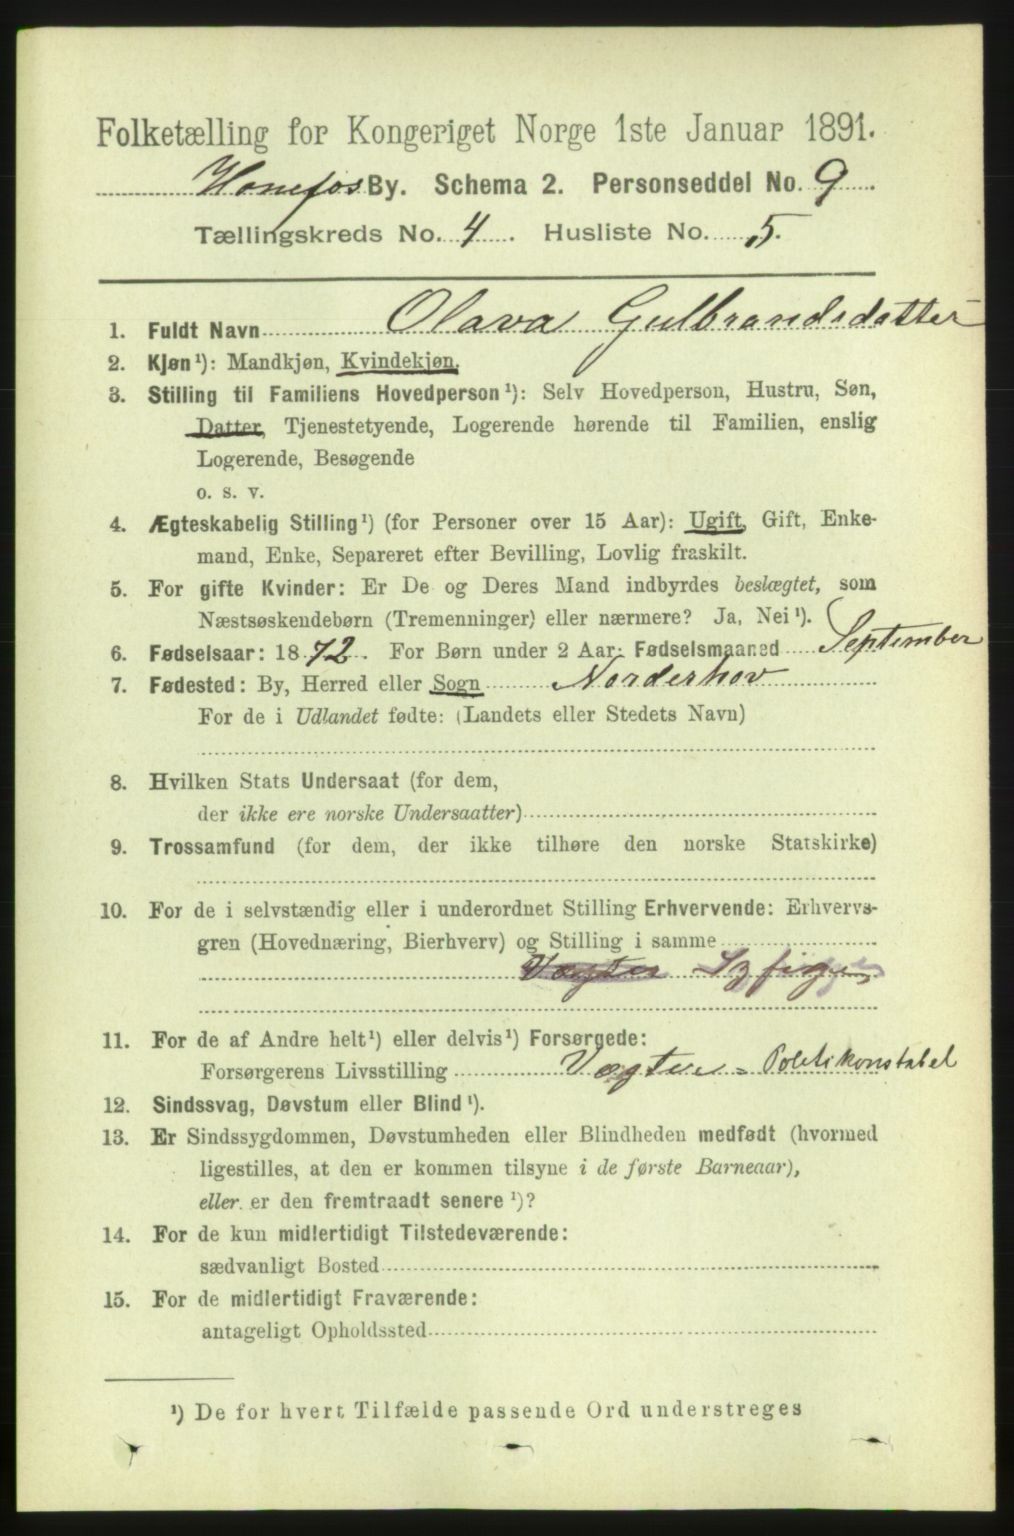 Folketælling for Kongeriget Norge 1ste Januar 1891.
Hønefos By. Schema 2. Personseddel No. 9.
Tællingskreds No. 4. Husliste No. 5.
1. Fuldt Navn Olava Gulbrandsdatter
2. Kjøn¹): Mandkjøn, Kvindekjøn.
3. Stilling til Familiens Hovedperson¹): Selv Hovedperson, Hustru, Søn,
Datter, Tjenestetyende, Logerende hørende til Familien, enslig
Logerende, Besøgende
o. s. v.
4. Ægteskabelig Stilling¹) (for Personer over 15 Aar): Ugift, Gift, Enke-
mand, Enke, Separeret efter Bevilling, Lovlig fraskilt.
5. For gifte Kvinder: Er De og Deres Mand indbyrdes beslægtet, som
Næstsøskendebørn (Tremenninger) eller nærmere? Ja, Nei¹).
6. Fødselsaar: 1872. For Børn under 2 Aar: Fødselsmaaned September
7. Fødested: By, Herred eller Sogn Norderhov
For de i Udlandet fødte: (Landets eller Stedets Navn)
8. Hvilken Stats Undersaat (for dem,
der ikke ere norske Undersaatter)
9. Trossamfund (for dem, der ikke tilhøre den norske Statskirke)
10. For de i selvstændig eller i underordnet Stilling Erhvervende: Erhvervs-
gren (Hovednæring, Bierhverv) og Stilling i samme
Vægter Sypige
11. For de af Andre helt¹) eller delvis¹) Forsørgede:
Forsørgerens Livsstilling Vægter = Politikonstabel
12. Sindssvag, Døvstum eller Blind¹).
13. Er Sindssygdommen, Døvstumheden eller Blindheden medfødt (hvormed
ligestilles, at den er kommen tilsyne i de første Barneaar),
eller er den fremtraadt senere¹)?
14. For de kun midlertidigt Tilstedeværende:
sædvanligt Bosted
15. For de midlertidigt Fraværende:
antageligt Opholdssted
¹) De for hvert Tilfælde passende Ord understreges